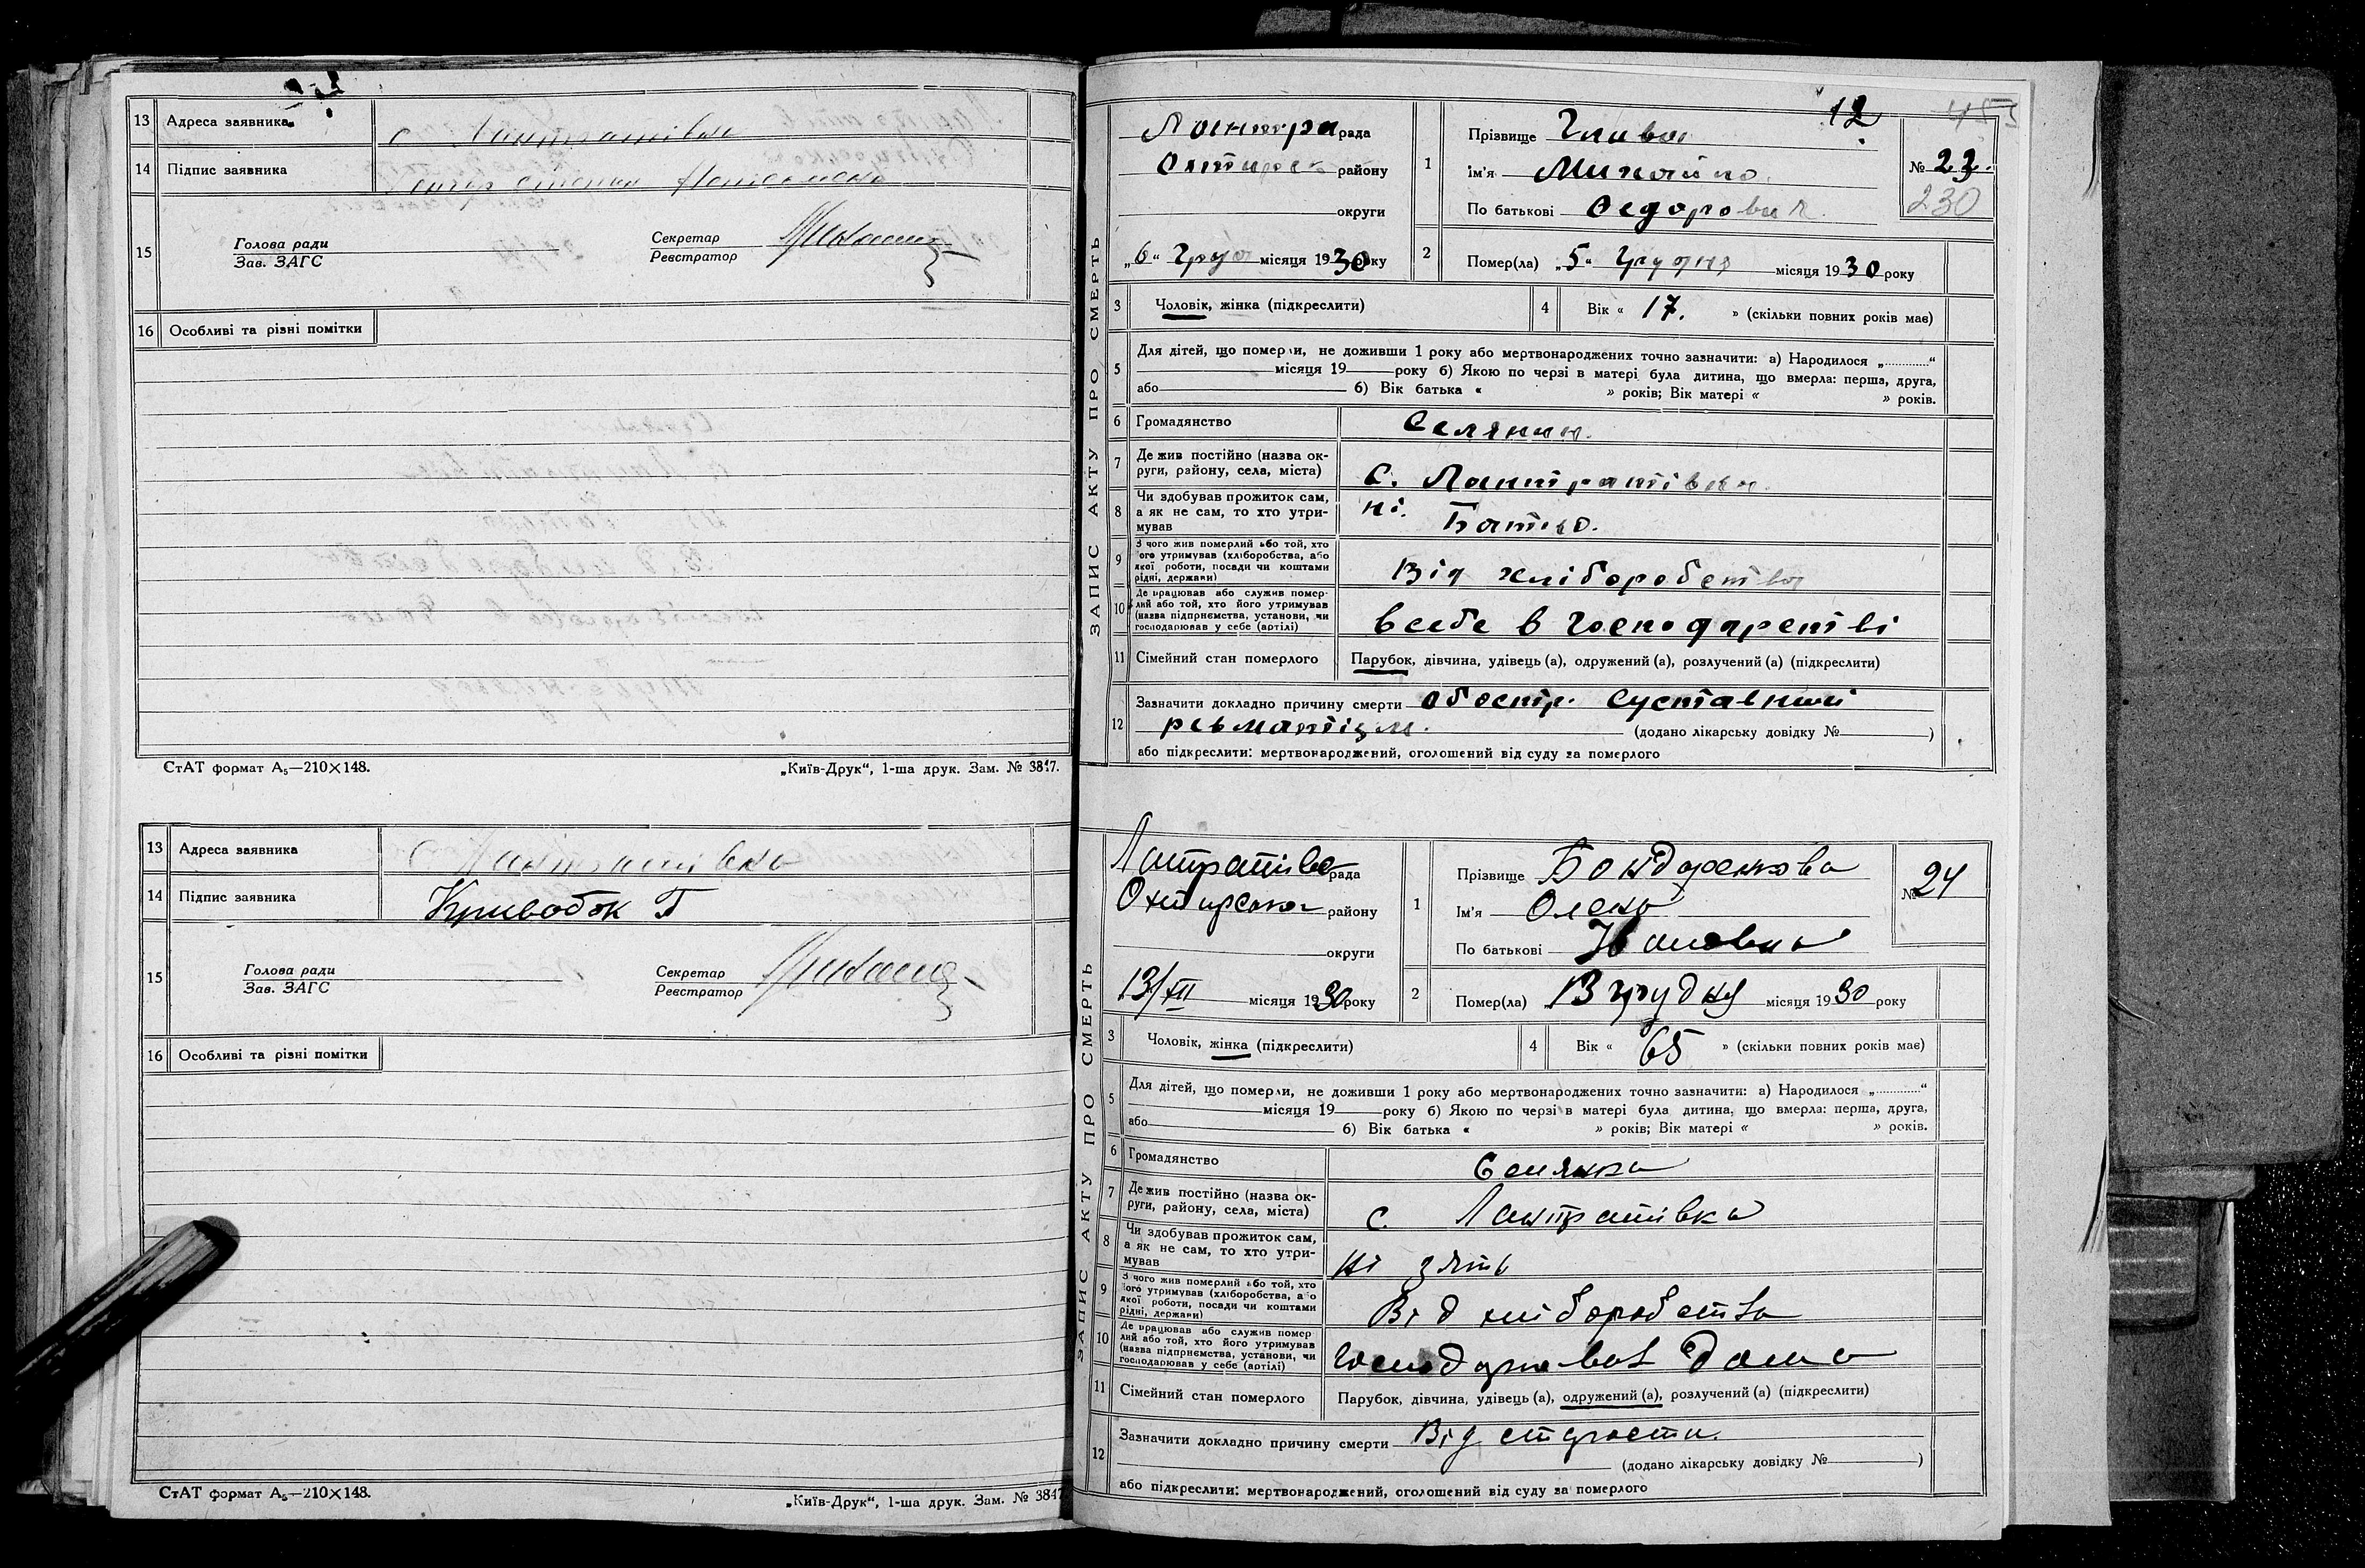 13 Адреса заявника с Лантратівка
14 Підпис заявника
15 Голова ради
Зав. ЗАГС
Секретар
Реєстратор
16 Особливі та різні помітки
СтАТ формат А₅—210×148.
„Київ-Друк“, 1-ша друк. Зам. № 3847.
13 Адреса заявника С Лантратівка
14 Підпис заявника Кривобок Г
15 Голова ради
Зав. ЗАГС
Секретар
Реєстратор
16 Особливі та різні помітки
СтАТ формат А₅—210×148.
„Київ-Друк“, 1-ша друк. Зам. № 3847
12
ЗАПИС АКТУ ПРО СМЕРТЬ
Лантра рада
Охтирсь району
округи
„6“ Груд місяця 1930 року
1 Прізвище Глива
Ім'я Михайло
По батькові Федорович
№ 23.
230
2 Помер(ла) „5“ Грудня місяця 1930 року
3 Чоловік, жінка (підкреслити)
4 Вік « 17. » (скільки повних років має)
5 Для дітей, що померли, не доживши 1 року або мертвонароджених точно зазначити: а) Народилося „............“
місяця 19 року б) Якою по черзі в матері була дитина, що вмерла: перша, друга,
або б) Вік батька « » років; Вік матері « » років.
6 Громадянство Селянин.
7 Де жив постійно (назва ок-
руги, району, села, міста) С. Лантратівка.
8 Чи здобував прожиток сам,
а як не сам, то хто утри-
мував ні. Батько.
9 З чого жив померлий або той, хто
його утримував (хліборобства, або
якої роботи, посади чи коштами
рідні, держави) Від хліборобства
10 Де працював або служив помер-
лий або той, хто його утримував
(назва підприємства, установи, чи
господарював у себе (артілі) в себе в господарстві
11 Сімейний стан померлого Парубок, дівчина, удівець (а), одружений (а), розлучений (а) (підкреслити)
12 Зазначити докладно причину смерти обостр. суставний
ревматізм. (додано лікарську довідку № )
або підкреслити: мертвонароджений, оголошений від суду за померлого
ЗАПИС АКТУ ПРО СМЕРТЬ
Лантратівс рада
Охтирська району
округи
13/XII місяця 1930 року
1 Прізвище Бондаренкова
Ім'я Олена
По батькові Івановна
№ 24
2 Помер(ла) 13 грудня місяця 1930 року
3 Чоловік, жінка (підкреслити)
4 Вік « 65 » (скільки повних років має)
5 Для дітей, що померли, не доживши 1 року або мертвонароджених точно зазначити: а) Народилося „............“
місяця 19 року б) Якою по черзі в матері була дитина, що вмерла: перша, друга,
або б) Вік батька « » років; Вік матері « » років.
6 Громадянство Селянка
7 Де жив постійно (назва ок-
руги, району, села, міста) с. Лантратівка
8 Чи здобував прожиток сам,
а як не сам, то хто утри-
мував ні зять
9 З чого жив померлий або той, хто
його утримував (хліборобства, або
якої роботи, посади чи коштами
рідні, держави) Від хліборобства
10 Де працював або служив помер
лий або той, хто його утримував
(назва підприємства, установи, чи
господарював у себе (артілі) Господарював дома
11 Сімейний стан померлого Парубок, дівчина, удівець (а), одружений (а), розлучений (а) (підкреслити)
12 Зазначити докладно причину смерти Від старости.
(додано лікарську довідку № )
або підкреслити: мертвонароджений, оголошений від суду за померлого